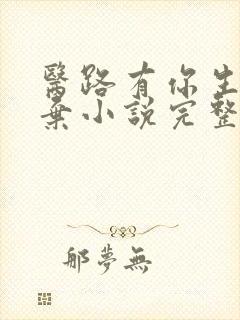 醫路有你生
棄小說完整
那夢無